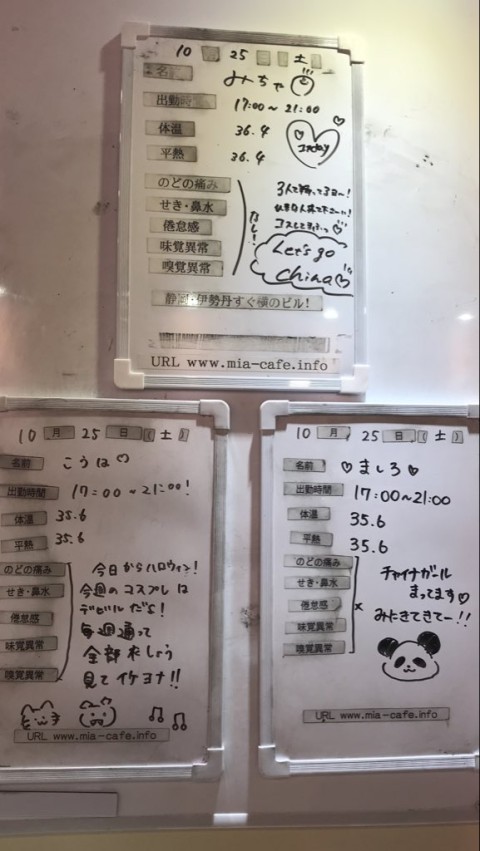 10 25 土
名 みちゃ
出勤時 17:00~21:00
体温 36.4
平熱 36.4
のどの痛み
せき・鼻水
倦怠感
味覚異常
嗅覚異常
なし!!
3人で
Let's go
China
静岡・伊勢丹すぐ横のビル!
URL www.mia-cafe.info
10月25日(土)
名前 こうは
出勤時間 17:00~21:00!
体温 35.6
平熱 35.6
のどの痛み
せき・鼻水
倦怠感
味覚異常
嗅覚異常
今日からハロウィン!
今週のコスプレは
デビルだぞ!
毎週通って
全部
見てイケヨナ!!
URL www.mia-cafe.info
10月25日(土)
名前 ♡ましろ♡
出勤時間 17:00~21:00
体温 35.6
平熱 35.6
のどの痛み
せき・鼻水
倦怠感
味覚異常
嗅覚異常
×
チャイナガール
まってます♡
みにきてきてー!!
URL www.mia-cafe.info